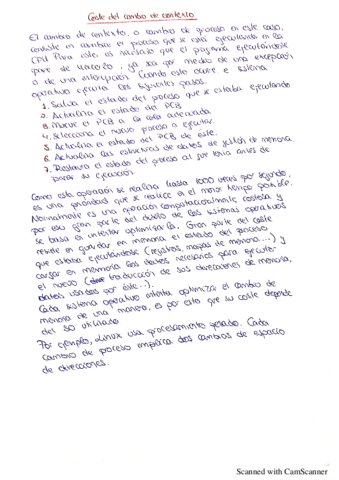 Coste del cambio de contexto
El cambio de contexto, o cambio de proceso en este caso,
consiste en cambiar el proceso que se está ejecutando en la
CPU. Para esto, es necesario que el programa ejecutándose
pare de hacerlo, ya sea por medio de una excepción
o de una interrupción. Cuando esto ocurre el sistema
operativo ejecuta los siguientes pasos:
1. Salva el estado del proceso que se estaba ejecutando
2. Actualiza el estado del PCB
3. Mueve el PCB a la cola adecuada.
4. Selecciona el nuevo proceso a ejecutar.
5. Actualiza el estado del PCB de éste.
6. Actualiza las estructuras de datos de gestión de memoria.
7. Restaura el estado del proceso al que tenía antes de
parar su ejecución.
Como esta operación se realiza hasta 1000 veces por segundo,
es una prioridad que se realice en el menor tiempo posible.
Normalmente es una operación computacionalmente costosa y
por eso gran parte del diseño de los sistemas operativos
se basa en intentar optimizarla. Gran parte del coste
reside en guardar en memoria el estado del proceso
que estaba ejecutándose (registros, mapas de memoria...) y
cargar en memoria los datos necesarios para ejecutar
el nuevo (traducción de sus direcciones de memoria,
datos usados por éste...).
Cada sistema operativo intenta optimizar el cambio de
memoria de una manera, es por esto que su coste depende
del SO utilizado
Por ejemplo, Linux usa procesamiento. Cada
cambio de proceso implica dos cambios de espacio
de direcciones.
Scanned with CamScanner